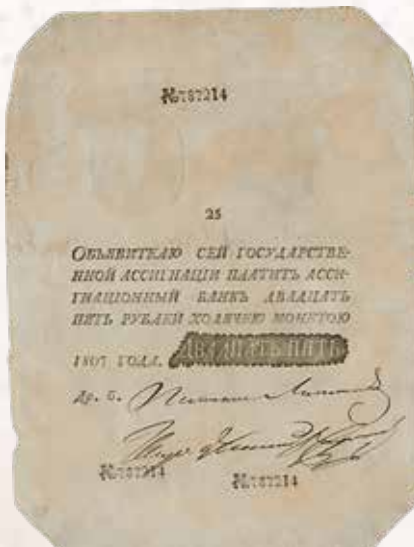 №787214
25
ОБЪЯВИТЕЛЮ СЕЙ ГОСУДАРСТВЕ-
ННОЙ АССИГНАЦІИ ПЛАТИТЪ АССИ-
ГНАЦІОННЫЙ БАНКЪ ДВАДЦАТЬ
ПЯТЬ РУБЛЕЙ ХОДЯЧЕЮ МОНЕТОЮ
1807 ГОДА. ДВАДЦАТЬ ПЯТЬ
№787214 №787214